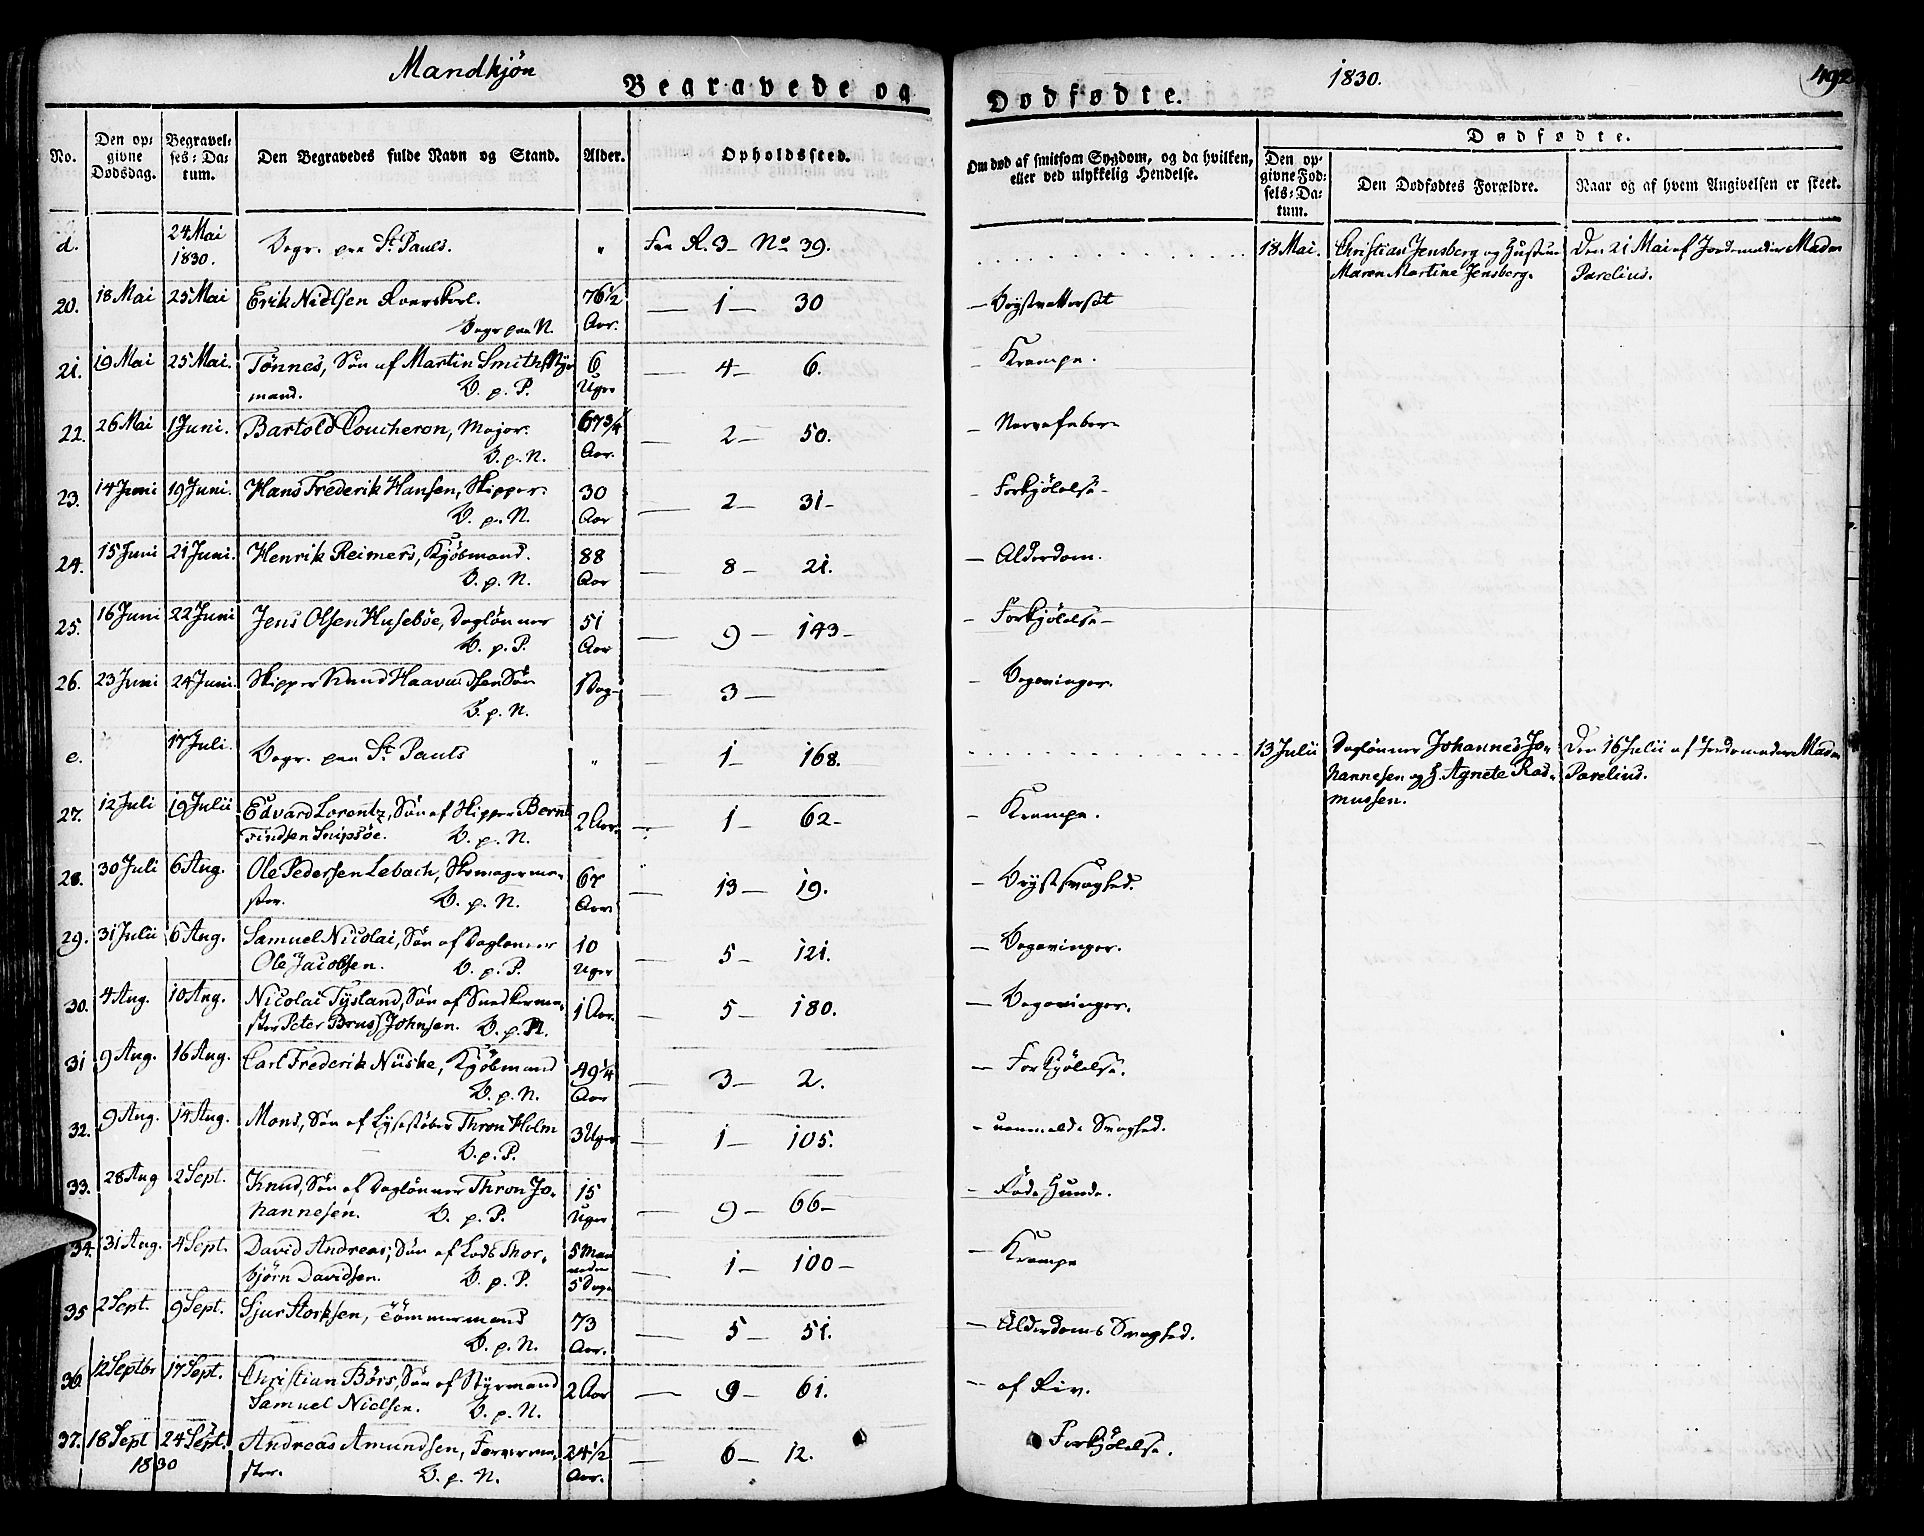 Mandkjøn
Begravede og
Dødfødte.
1830.
492
No.
Den opgivne Dødsdag.
Begravelses-Datum.
Den Begravedes fulde Navn og Stand.
Alder.
Opholdssted.
Om død af smitsom Sygdom, og da hvilken, eller ved ulykkelig Hendelse.
Dødfødte.
Den opgivne Fødsels-Datum.
Den Dødfødtes Forældre.
Naar og af hvem Angivelsen er skeet.
d. 24 Mai 1830. Begr. paa St Pauls. " Fra R. 3 - No 39. 18 Mai. Christian Jensberg og Hustrue Maren Martine Jensberg. Den 21 Mai af Jordemoder Madm Parelius.
20. 18 Mai 25 Mai Erik Nielsen Begr. paa N. 76 1/2 Aar. — 1 — 30
21. 19 Mai 25 Mai. Tønnes, Søn af Martin Smith, Styrmand. B. p. P. 6 Uger — 4 — 6. — Krampe.
22. 26 Mai 1 Juni. Bartold Coucheron, Major. B. p. N. 67 3/4 Aar. — 2 — 50. — Nervefeber
23. 14 Juni 19 Juni. Hans Frederik Hansen, Skipper. B. p. N. 30 Aar — 2 — 31 — Forkjølelse
24. 15 Juni 21 Juni. Henrik Reimers, Kjøbmand. B. p. N. 88 Aar — 8 — 21. — Alderdom.
25. 16 Juni 22 Juni Jens Olsen Husebøe, Daglønner B. p. P. 51 Aar — 9 — 143 — Forkjølelse
26. 23 Juni 24 Juni. Skipper Knud Haavudsen Søn B. p. N. 1 Dag — 3 —
e. 17 Juli. Begr. paa St Pauls " — 1 — 168. 13 Julii Daglønner Johannes Johannesen og H. Agnete Rasmussen. Den 16 Julii af Jordemoder Madm Parelius.
27. 12 Juli 19 Julii Edvard Lorentz, Søn af Skipper Bernt Findsen Snipsøe. B. p. N. 2 Aar. — 1 — 62 — Krampe.
28. 30 Juli 6 Aug. Ole Pedersen Lebach, Skomagermester. B. p. N. 67 Aar. — 13 — 19. — Brystsvaghed.
29. 31 Julii 6 Aug. Samuel Nicolai, Søn af Daglønner Ole Jacobsen. B. p. P. 10 Uger — 5 — 121.
30. 4 Aug. 10 Aug. Nicolai Tysland, Søn af Snedkermester Peter Bruss Johnsen. B. p. N. 1 Aar. — 5 — 180.
31 9 Aug. 16 Aug. Carl Frederik Nüske, Kjøbmand B. p. N. 49 1/4 Aar — 3 — 2. — Forkjølelse.
32. 9 Aug. 14 Aug. Mons, Søn af Lysestøber Thron Holm B. p. P. 3 Uger — 1 — 105. — Svaghed.
33. 28 Aug 2 Sept. Knud, Søn af Daglønner Thron Johannesen. B. p. P. 15 Uger — 9 — 66 — Røde Hunde.
34. 31 Aug. 4 Sept. David Andreas, Søn af Lods Thorbjørn Davidsen. B. p. P. 5 Maaneder 5 Dage — 1 — 100 — Krampe
35 2 Sept. 9 Sept. Sjur Storksen, Tømmermand B. p. N. 73 Aar. — 5 — 51. — Alderdoms Svaghed.
36. 12 Septbr 17 Sept. Christian Børs, Søn af Styrmand Samuel Nielsen. B. p. N. 2 Aar — 9 — 61.
37. 18 Sept 24 Sept. 1830 Andreas Amundsen, Farvermester. B. p. N. 24 1/2 Aar. — 6 — 12. Forkjølelse.